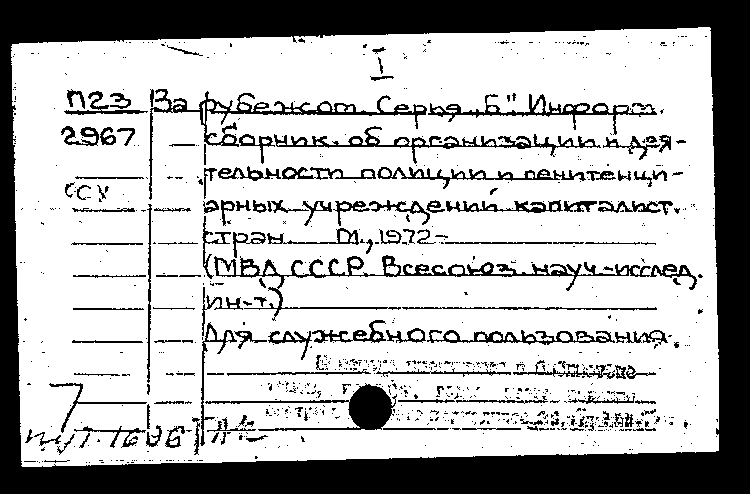 I
П23 За рубежом. Серия „Б" Информ.
2967 сборник об организации и дея-
тельности полиции и пенитенци-
арных учреждений капиталист.
стран. М., 1972-
(МВД СССР. Всесоюз. науч-исслед.
ин-т.)
Для служебного пользования.